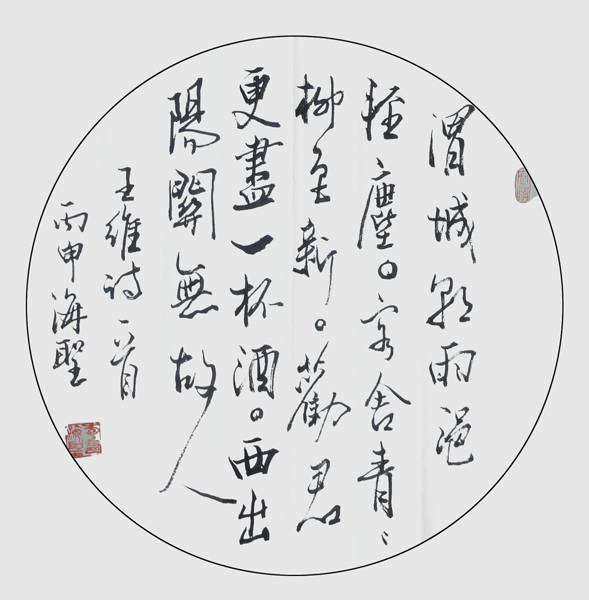 渭城朝雨浥
輕〻塵。客舍青〻
柳色新。勸君
更盡一杯酒。西出
陽關無故人
王維詩一首
丙申海聖